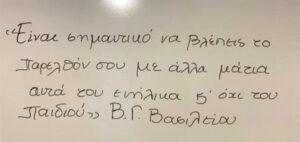 “Είναι σημαντικό να βλέπεις το
Παρελθόν σου με άλλα μάτια
αυτά του ενήλικα κ' όχι του
Παιδιού,, Β.Γ. Βασιλείου